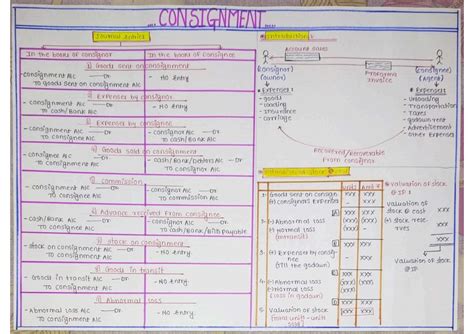 ... CONSIGNMENT...
Journal entries
In the books of consignor
In the books of consignee
1) Goods sent on consignment
- consignment A/C —Dr
TO goods sent on consignment A/C
- NO entry
2) Expenses by consignor
- consignment A/C —Dr
TO cash/Bank A/C
- NO Entry
3) Expenses by consignee
- consignment A/C —Dr
TO consignee A/C
- consignor A/C —Dr
TO cash/Bank A/C
4) Goods sold on consignment
- consignee A/C —Dr
TO consignment A/C
- cash/Bank/debtors A/C —Dr
TO consignor A/C
5) commission
- consignment A/C —Dr
TO consignee A/C
- consignor A/C —Dr
TO commission A/C
6) Advance received from consignee
- cash/Bank A/C —Dr
TO consignee A/C
- consignor A/C —Dr
TO cash/Bank/Bills payable
7) stock on consignment
- stock on consignment A/C —Dr
TO consignment A/C
- NO Entry
8) Goods in transit
- Goods in transit A/C —Dr
TO consignment A/C
- NO Entry
9) Abnormal loss
- Abnormal loss A/C —Dr
TO consignment A/C
- NO Entry
Account sales
(consignor)
(owner)
Proforma
invoice
(consignee)
(Agent)
Expenses
- goods
- loading
- insurance
- carriage
Expenses
- unloading
- Transportation
- Taxes
- godown rent
- Advertisement
- other Expenses
Recovered/Recoverable
from consignor
unit
Amt ₹
1) Goods sent on consign
(+) consignor's Expenses
2) (-) Abnormal loss
(-) Normal loss
3) (+) Expenses by consignee
(till the godown)
4) (-) Abnormal loss
(Loss in godown)
5) valuation of stock
valuation of stock
@ IP
valuation of
stock @ cost
(+) stock reserves
valuation of stock
@ IP
xxx